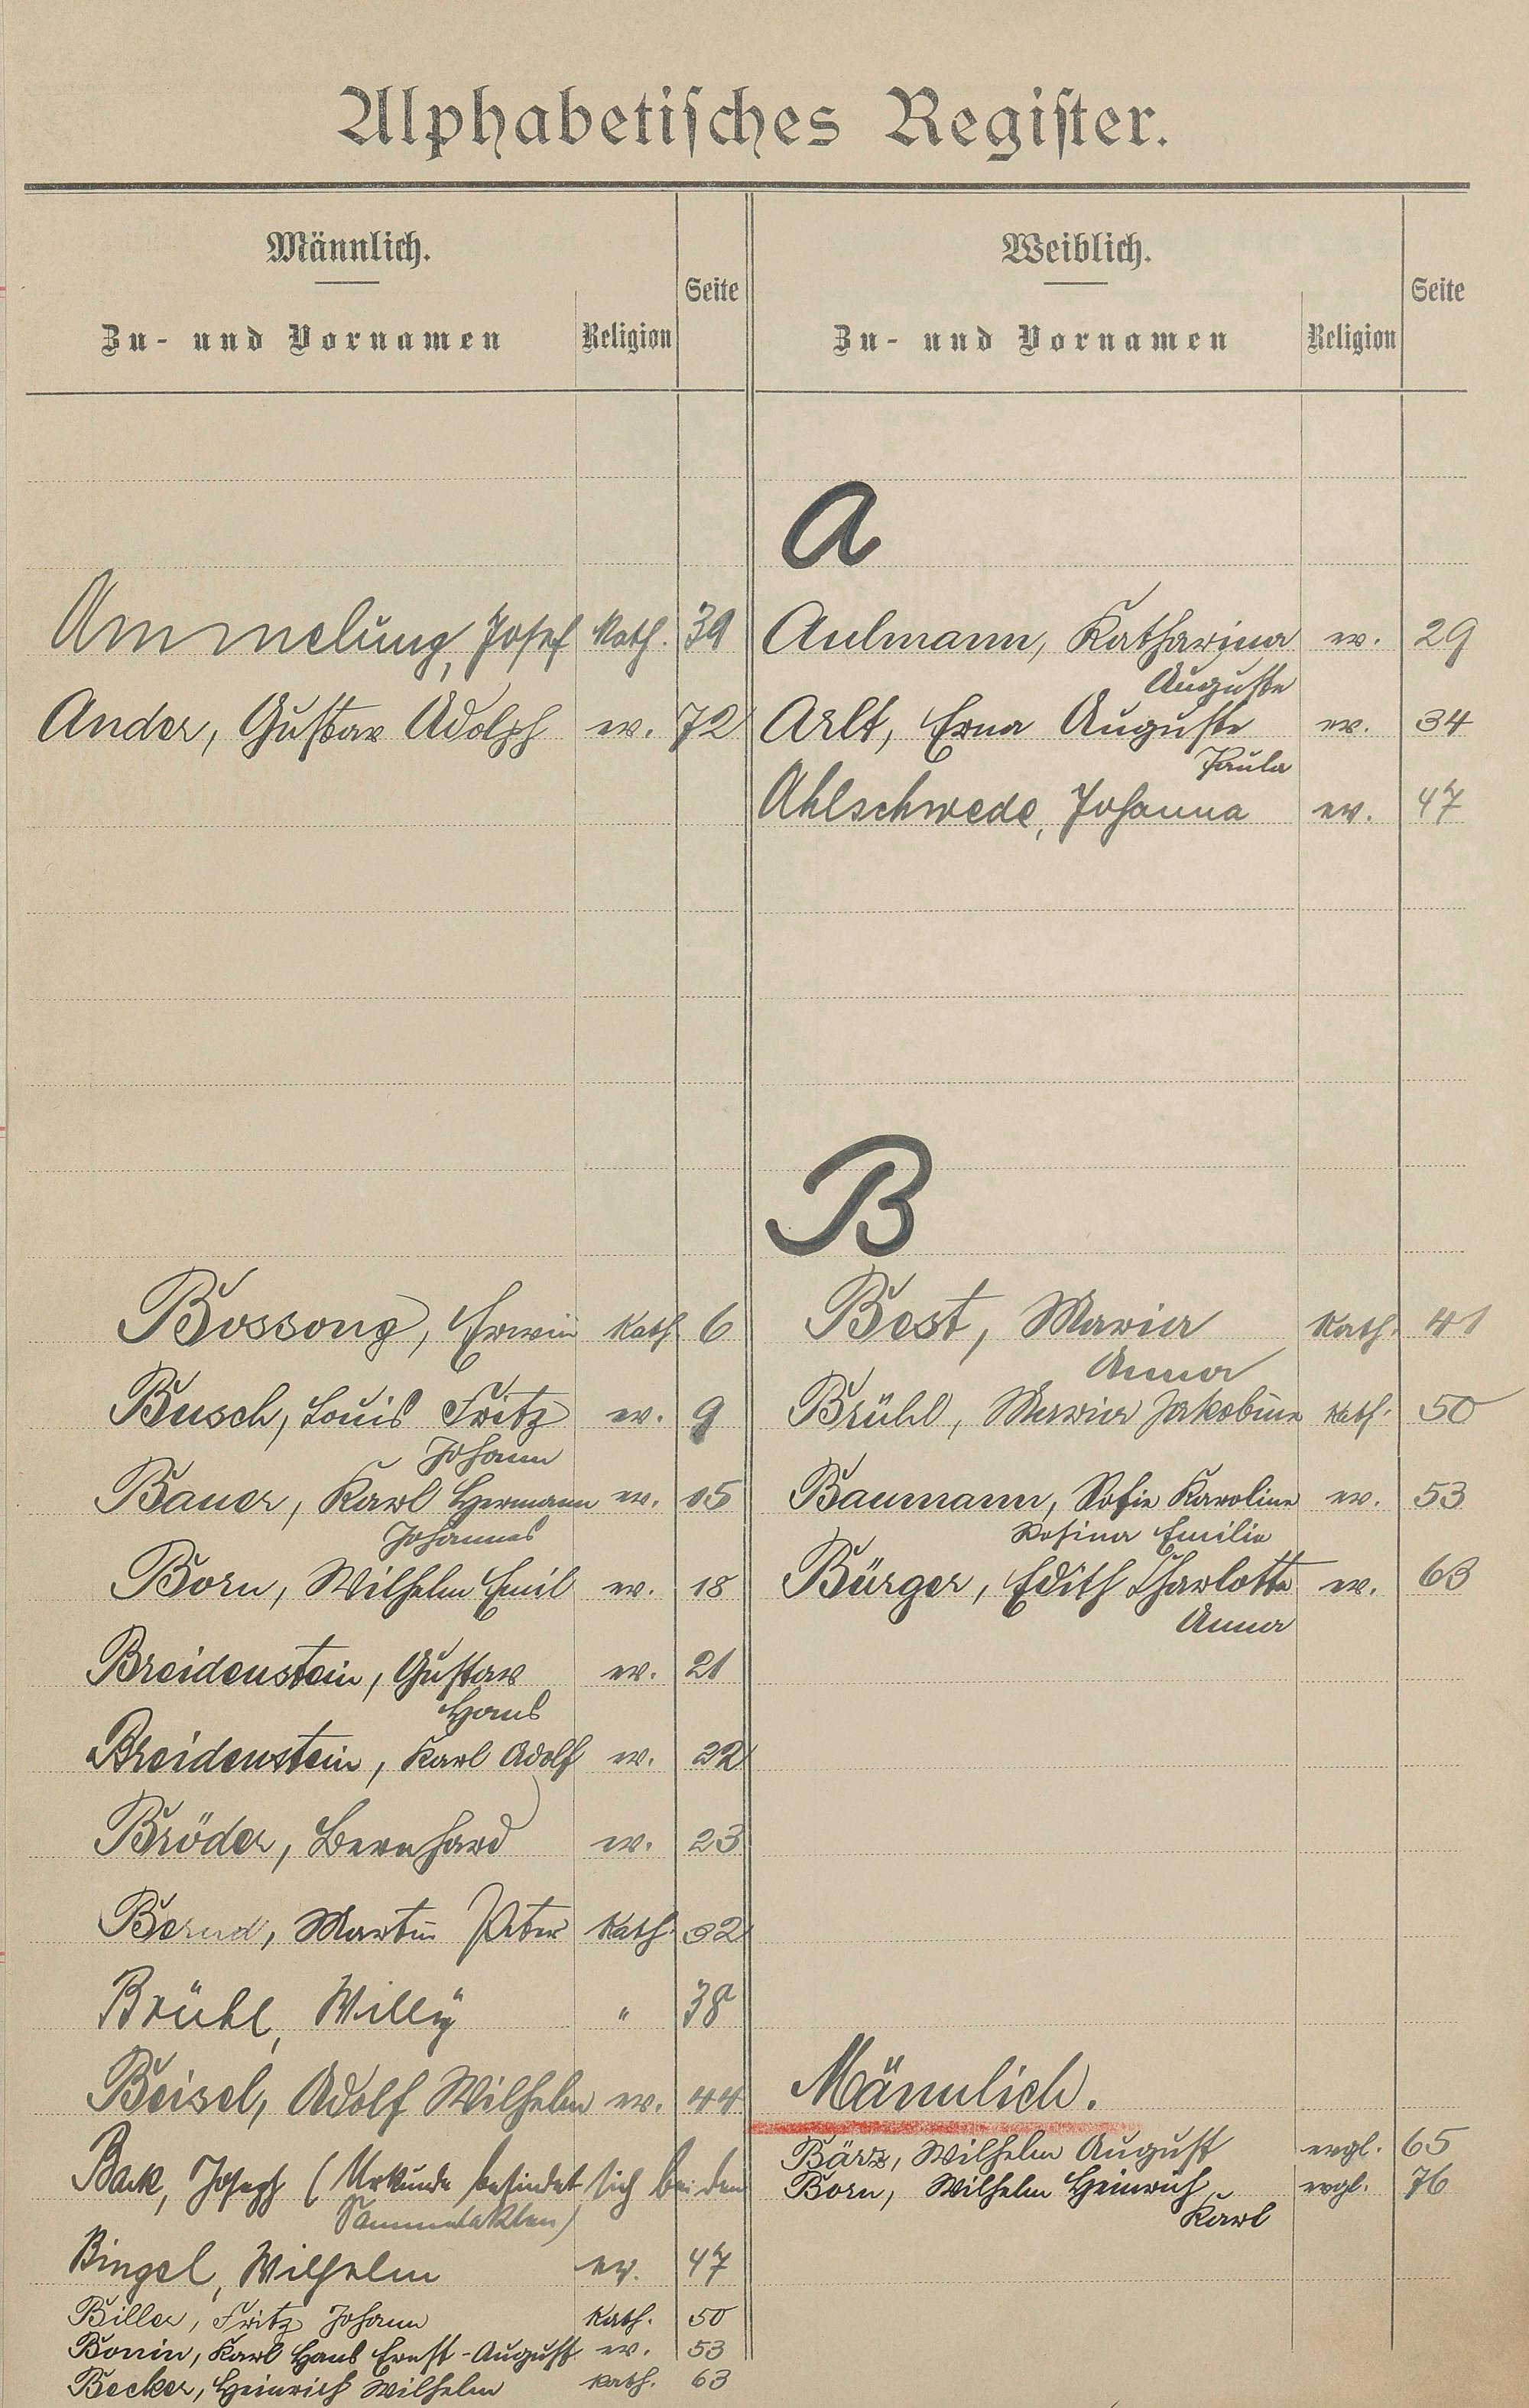 Alphabetisches Register.
Männlich.
Seite
Zu- und Vornamen
Religion
Ammelung, Josef kath. 39
Ander, Gustav Adolph ev. 72
Bossong, Erwin kath. 6
Busch, Louis Fritz ev. 9
Johann
Bauer, Karl Hermann ev. 15
Johannes
Born, Wilhelm Emil ev. 18
Breidenstein, Gustav ev. 21
Hans
Breidenstein, Karl Adolf ev. 22
Bröder, Bernhard ev. 23
Bernd, Martin Peter kath. 32
Brühl, Willy " 38
Beisel, Adolf Wilhelm ev. 44
Bark, Joseph (Urkunde befindet sich bei den
Sammelakten)
Bingel, Wilhelm ev. 47
Biller, Fritz Johann kath. 50
Bonin, Karl Hans Ernst-August ev. 53
Becker, Heinrich Wilhelm kath. 63
Weiblich.
Seite
Zu- und Vornamen
Religion
A
Aulmann, Katharina ev. 29
Auguste
Arlt, Erna Auguste ev. 34
Paula
Ahlschwede, Johanna ev. 47
B
Best, Maria kath. 41
Anna
Brühl, Maria Jakobine kath. 50
Baumann, Sofie Karoline ev. 53
Rosina Emilie
Bürger, Edith Charlotte ev. 63
Anna
Männlich.
Bärz, Wilhelm August evgl. 65
Born, Wilhelm Heinrich evgl. 76
Karl